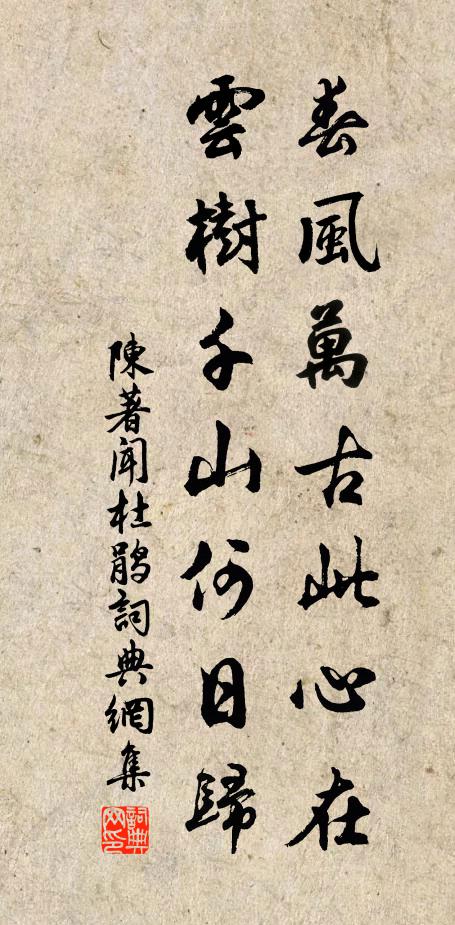 春風萬古此心在
雲樹千山何日歸
陳著聞杜鵑詞典網集
詞典網印